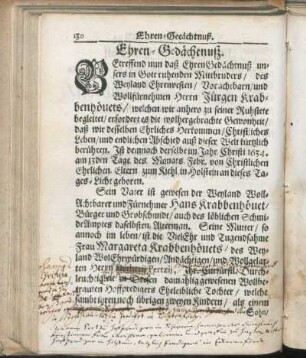 130 Ehren-Gedächtnuß.
Ehren-Gedächtnuß.
BEtreffend nun daß Ehren Gedächtnuß un-
sers in Gott ruhenden Mitbruders / des
Weyland Ehrenvesten / Vorachtbarn / und
Wolfürnehmen Herrn Jürgen Krab-
benhövets / welchen wir anhero zu seiner Ruhstete
begleitet / erfordert es die wolhergebrachte Gewonheit /
daß wir desselben Ehrliches Herkommen / Christliches
Leben / und endlichen Abschied auß dieser Welt kürtzlich
berühren. Ist demnach derselbe im Jahr Christi 1634.
am 13den Tage des Monats Febr. von Christlichen
Ehrlichen Eltern zum Kiehl in Holstein an dieses Ta-
ges-Licht geboren.
Sein Vater ist gewesen der Weyland Woll-
Achtbarer und Fürnehmer Hans Krabbenhövet /
Bürger und Grobschmidt / auch des löblichen Schmi-
de Amptes daselbsten Alterman. Seine Mutter / so
annoch im leben / ist die Viel Ehr und Tugendsahme
Frau Margareta Krabbenhövets / des Wey-
land WolEhrwürdigen / Andächtigen / und Wolgelar-
ten Herrn
leuchtigkeit in damahlig gewesenen Wollbe-
trauten Hoffpredigers Ehrleibliche Tochter / welche
sambt ihren noch übrigen zweyen Kindern / als einem
Sohn /